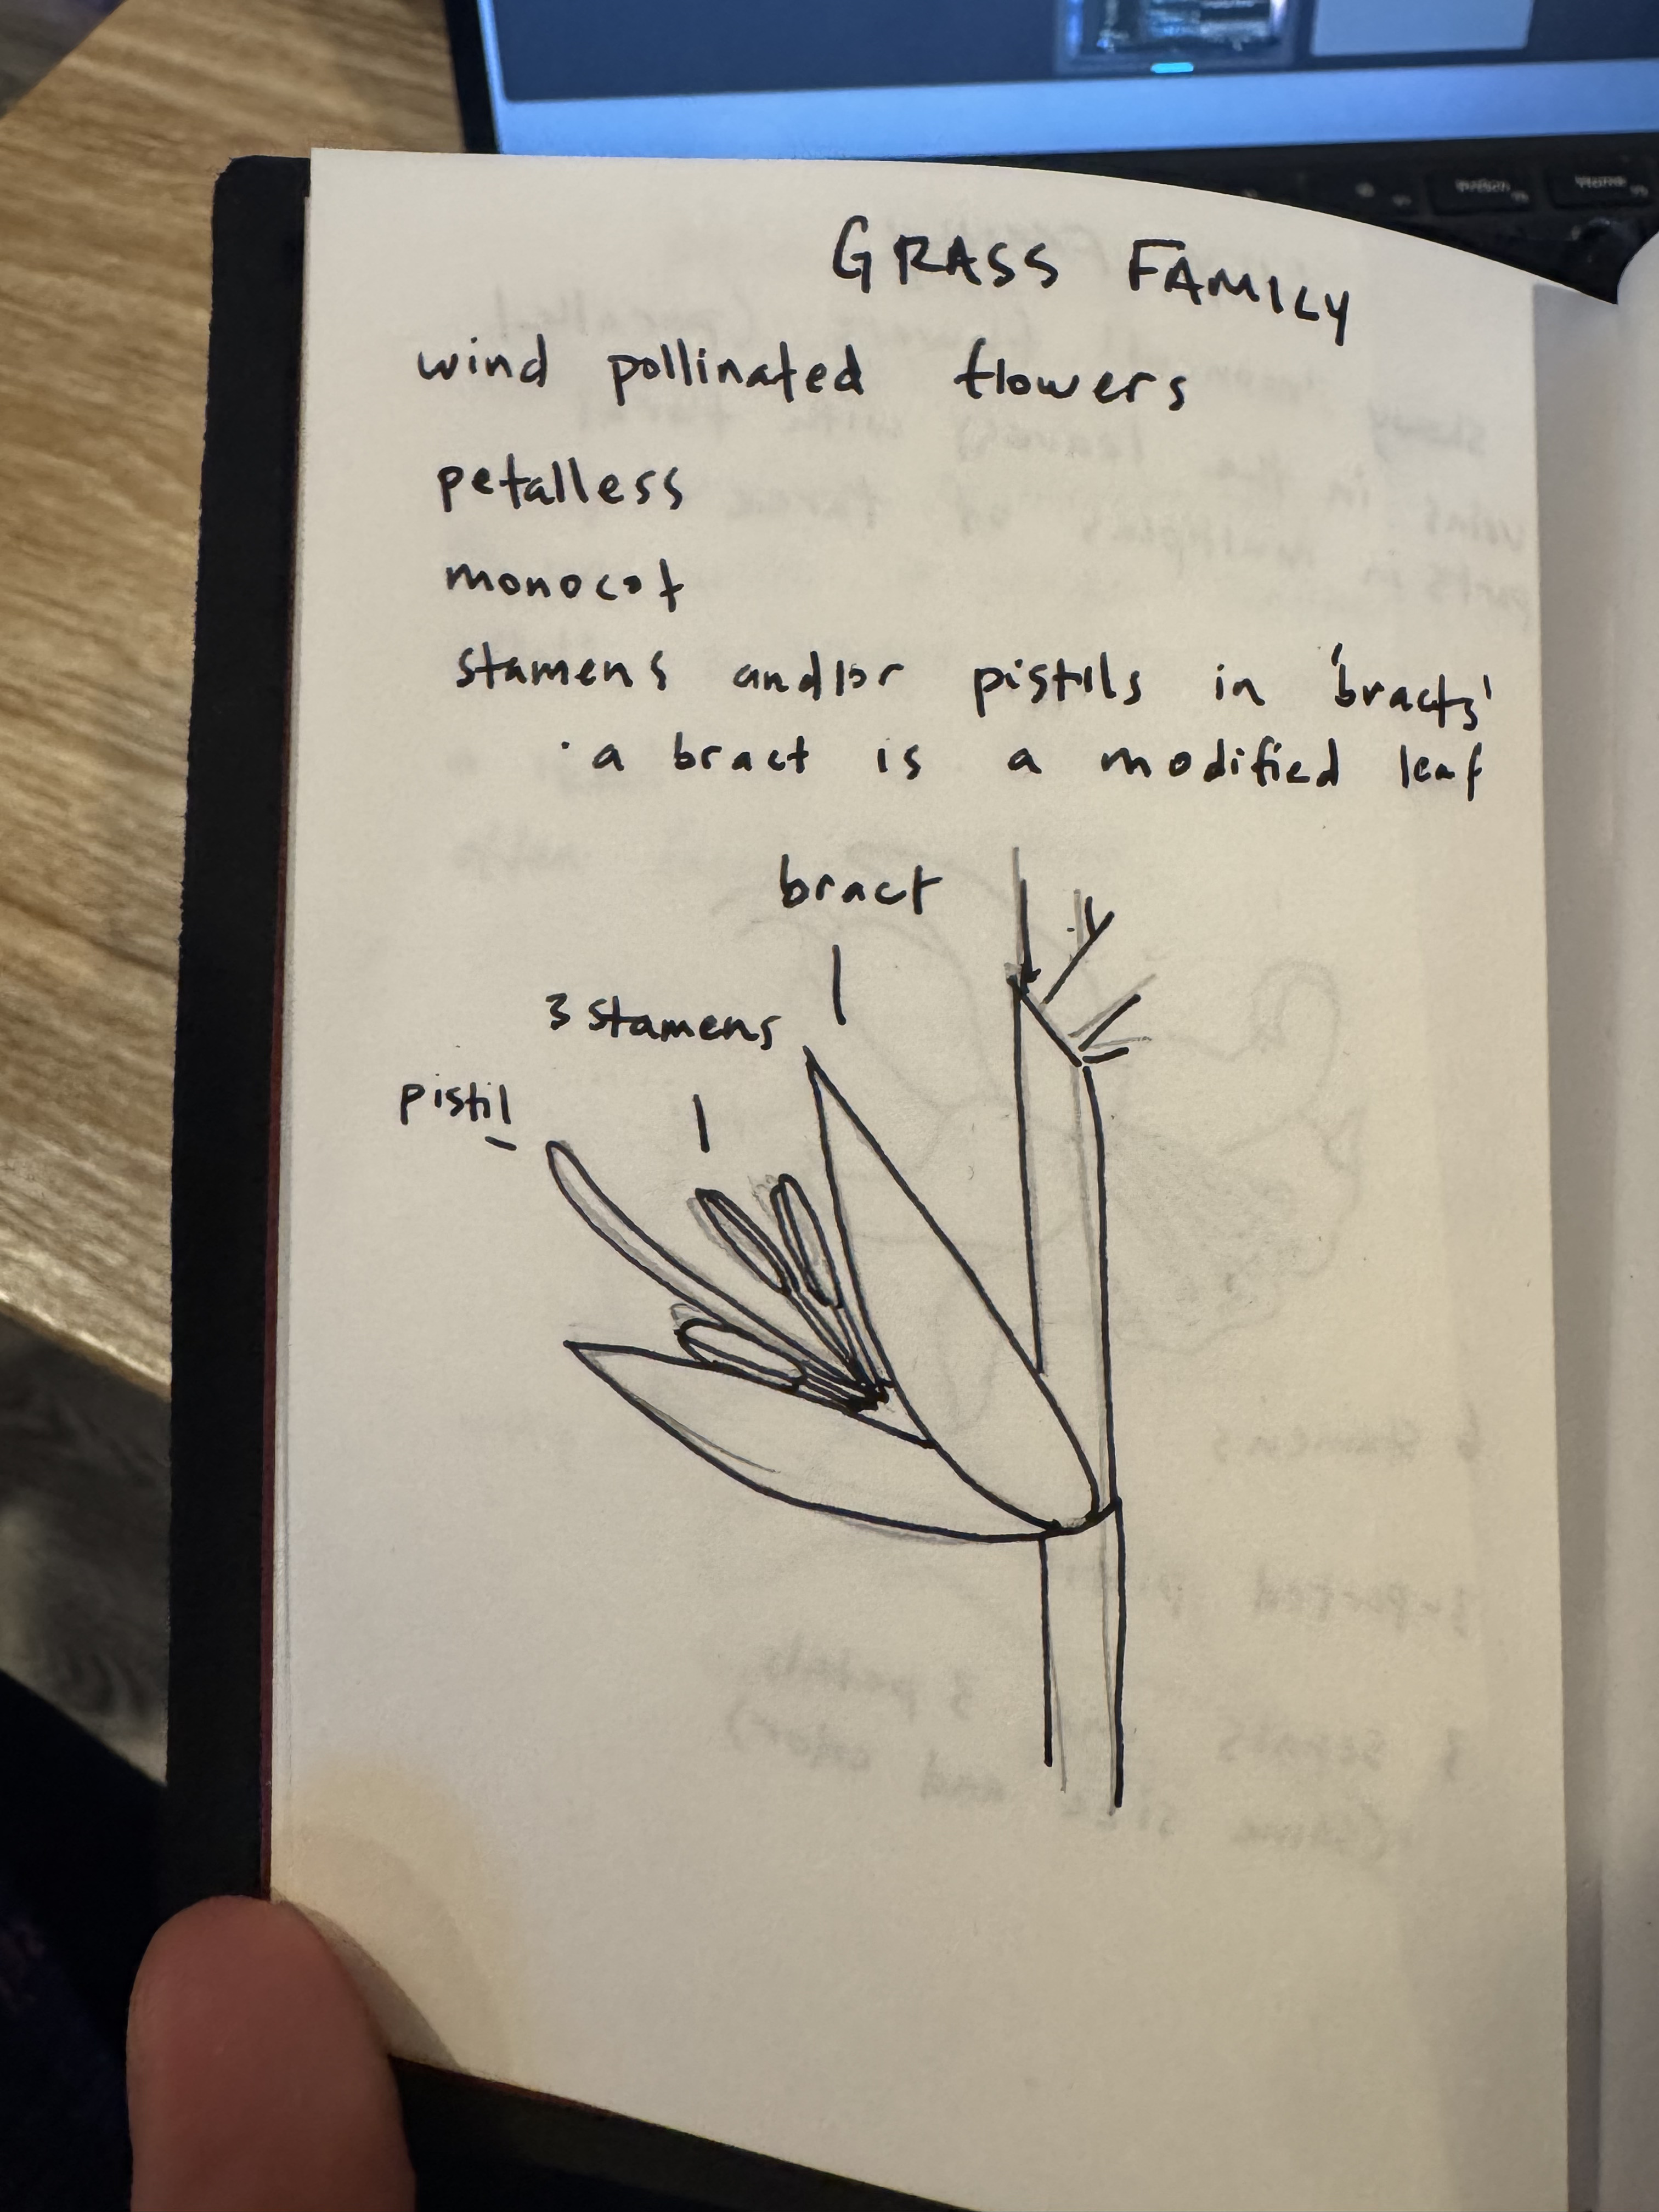 GRASS FAMILY
wind pollinated flowers
petalless
monocot
stamens and/or pistils in 'bracts'
· a bract is a modified leaf
bract
3 stamens
pistil